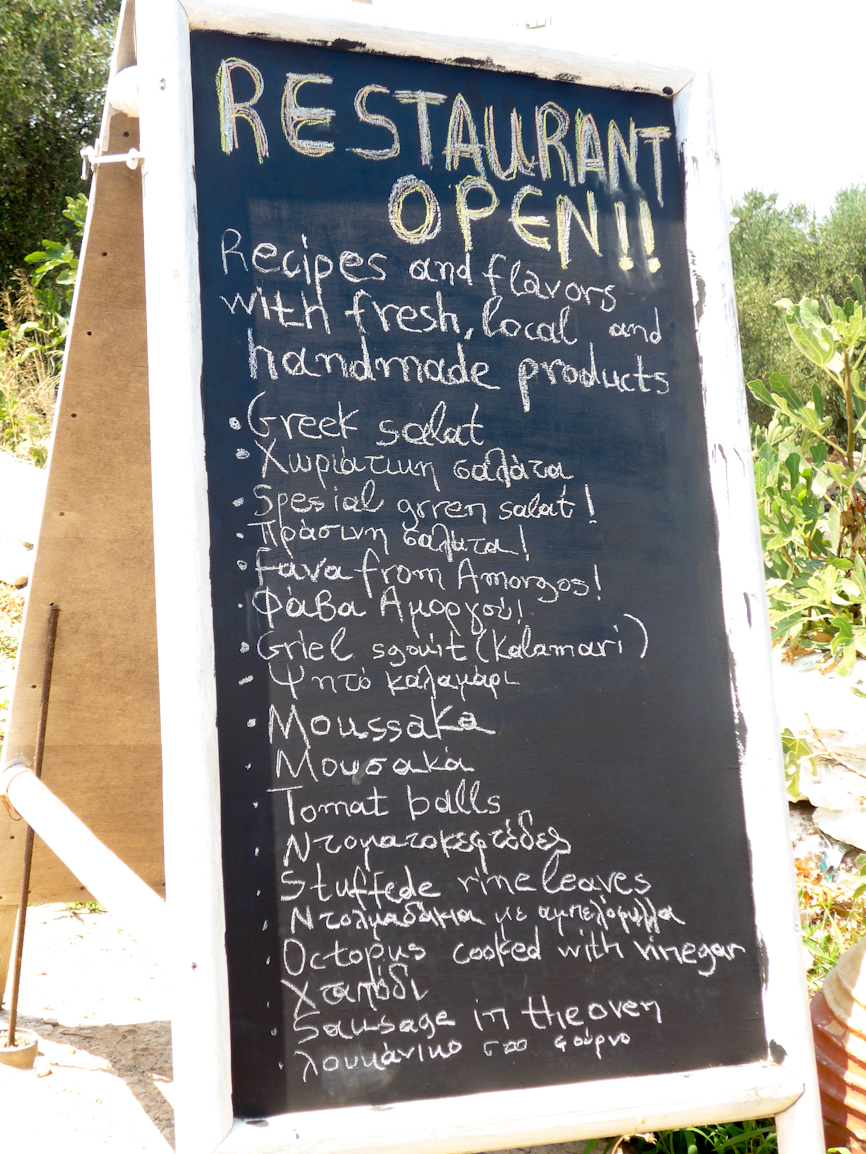 RESTAURANT
OPEN!!
Recipes and flavors
with fresh, local and
handmade products
• Greek salat
• Χωριάτικη σαλάτα
• Spesial grren salat!
• πράσινη σαλάτα!
• Fava from Amorgos!
• Φάβα Αμοργού!
• Griel sgouit (kalamari)
• Ψητό καλαμάρι
• Moussaka
• Μουσακά
• Tomat balls
• Ντοματοκεφτέδες
• Stuffede rine leaves
• Ντολμαδάκια με αμπελόφυλλα
• Octopus cooked with vinegar
• Χταπόδι
• Sausage in the oven
• λουκάνικο στο φούρνο